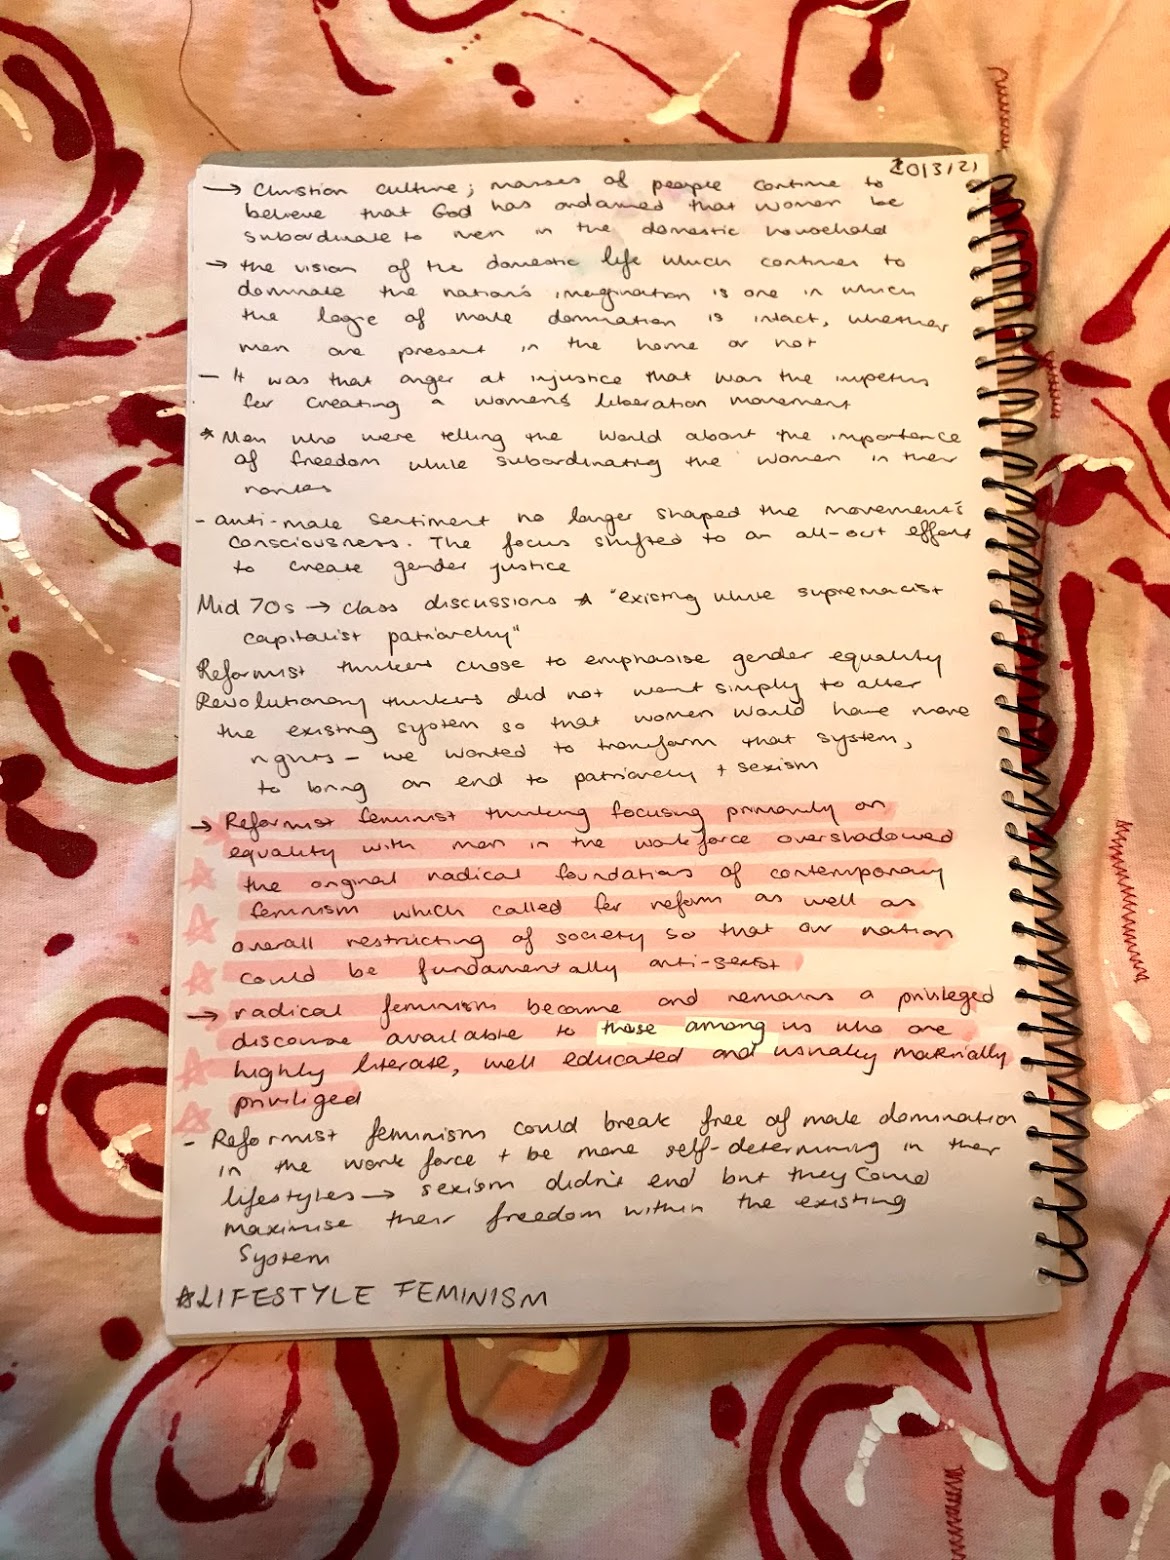 20/3/21
→ Christian culture; masses of people continue to
believe that God has ordained that women be
subordinate to men in the domestic household
→ the vision of the domestic life which continues to
dominate the nation's imagination is one in which
the logic of male domination is intact, whether
men are present in the home or not
— It was that anger at injustice that was the impetus
for creating a women's liberation movement
* Men who were telling the world about the importance
of freedom while subordinating the women in their
- anti-male sentiment no longer shaped the movement's
consciousness. The focus shifted to an all-out effort
to create gender justice
Mid 70s → class discussions ☆ "existing white supremacist
capitalist patriarchy"
Reformist thinkers chose to emphasise gender equality
Revolutionary thinkers did not want simply to alter
the existing system so that women would have more
rights – we wanted to transform that system,
to bring an end to patriarchy + sexism
→ Reformist feminist thinking focusing primarily on
equality with men in the workforce overshadowed
☆ the original radical foundations of contemporary
☆ feminism which called for reform as well as
overall restructing of society so that our nation
☆ could be fundamentally anti-sexist
→ radical feminism became and remains a privileged
discourse available to those among us who are
☆ highly literate, well educated and usually materially
☆ privileged
- Reformist feminism could break free of male domination
in the work force + be more self-determining in their
lifestyles → sexism didn't end but they could
maximise their freedom within the existing
system
☆LIFESTYLE FEMINISM